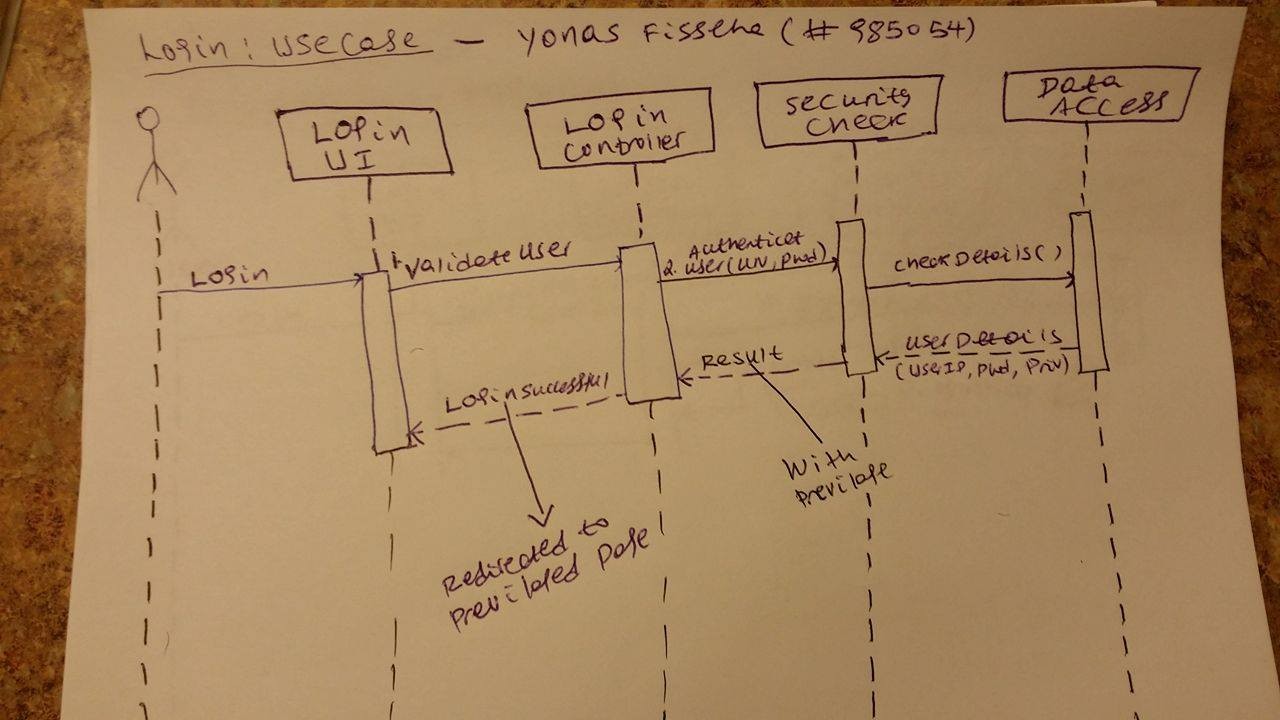 Login : usecase — Yonas Fisseha (# 985054)
Login
UI
Login
Controller
Security
Check
Data
Access
Login
1. Validate User
Authenticat
2. User(UN, Pwd)
CheckDetails()
UserDetails
(UserID, Pwd, Priv)
Result
Login Successful
With
Previlage
Redirected to
Previlaged Page